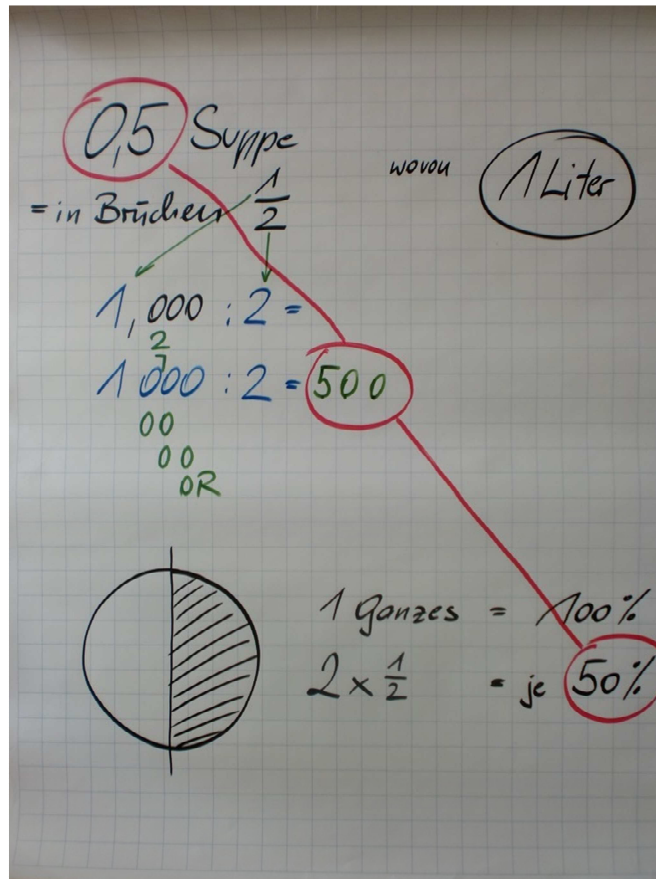 0,5 Suppe
wovon 1 Liter
= in Brüchen 1/2
1,000 : 2 =
2
1 000 : 2 = 500
00
00
0R
1 Ganzes = 100%
2 x 1/2 = je 50%